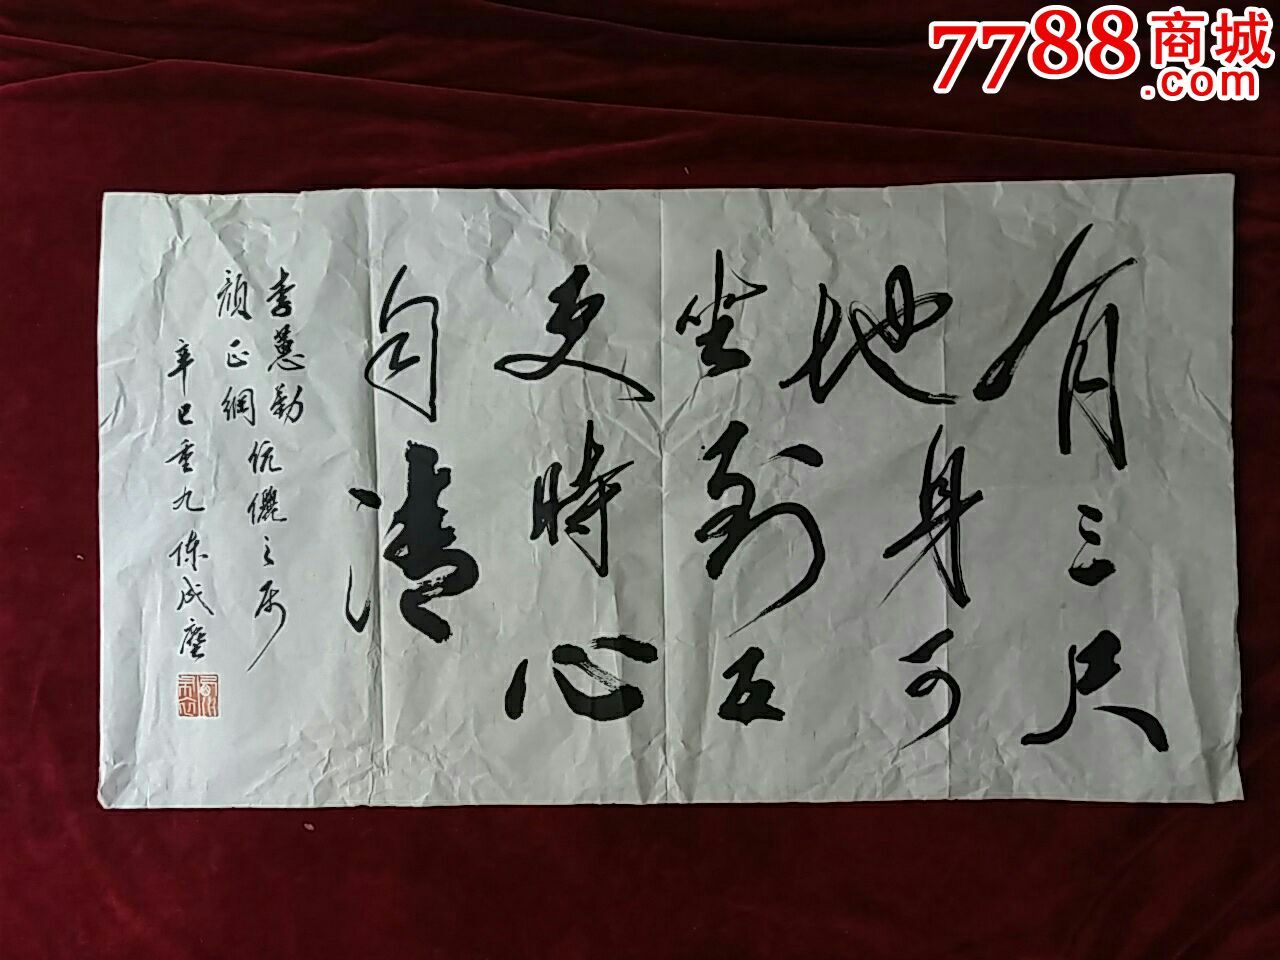 有三尺
地身可
坐到五
更時心
自清
李蕙勤
顏正綱 伉儷之属
辛巳重九陈成
7788商城
.com